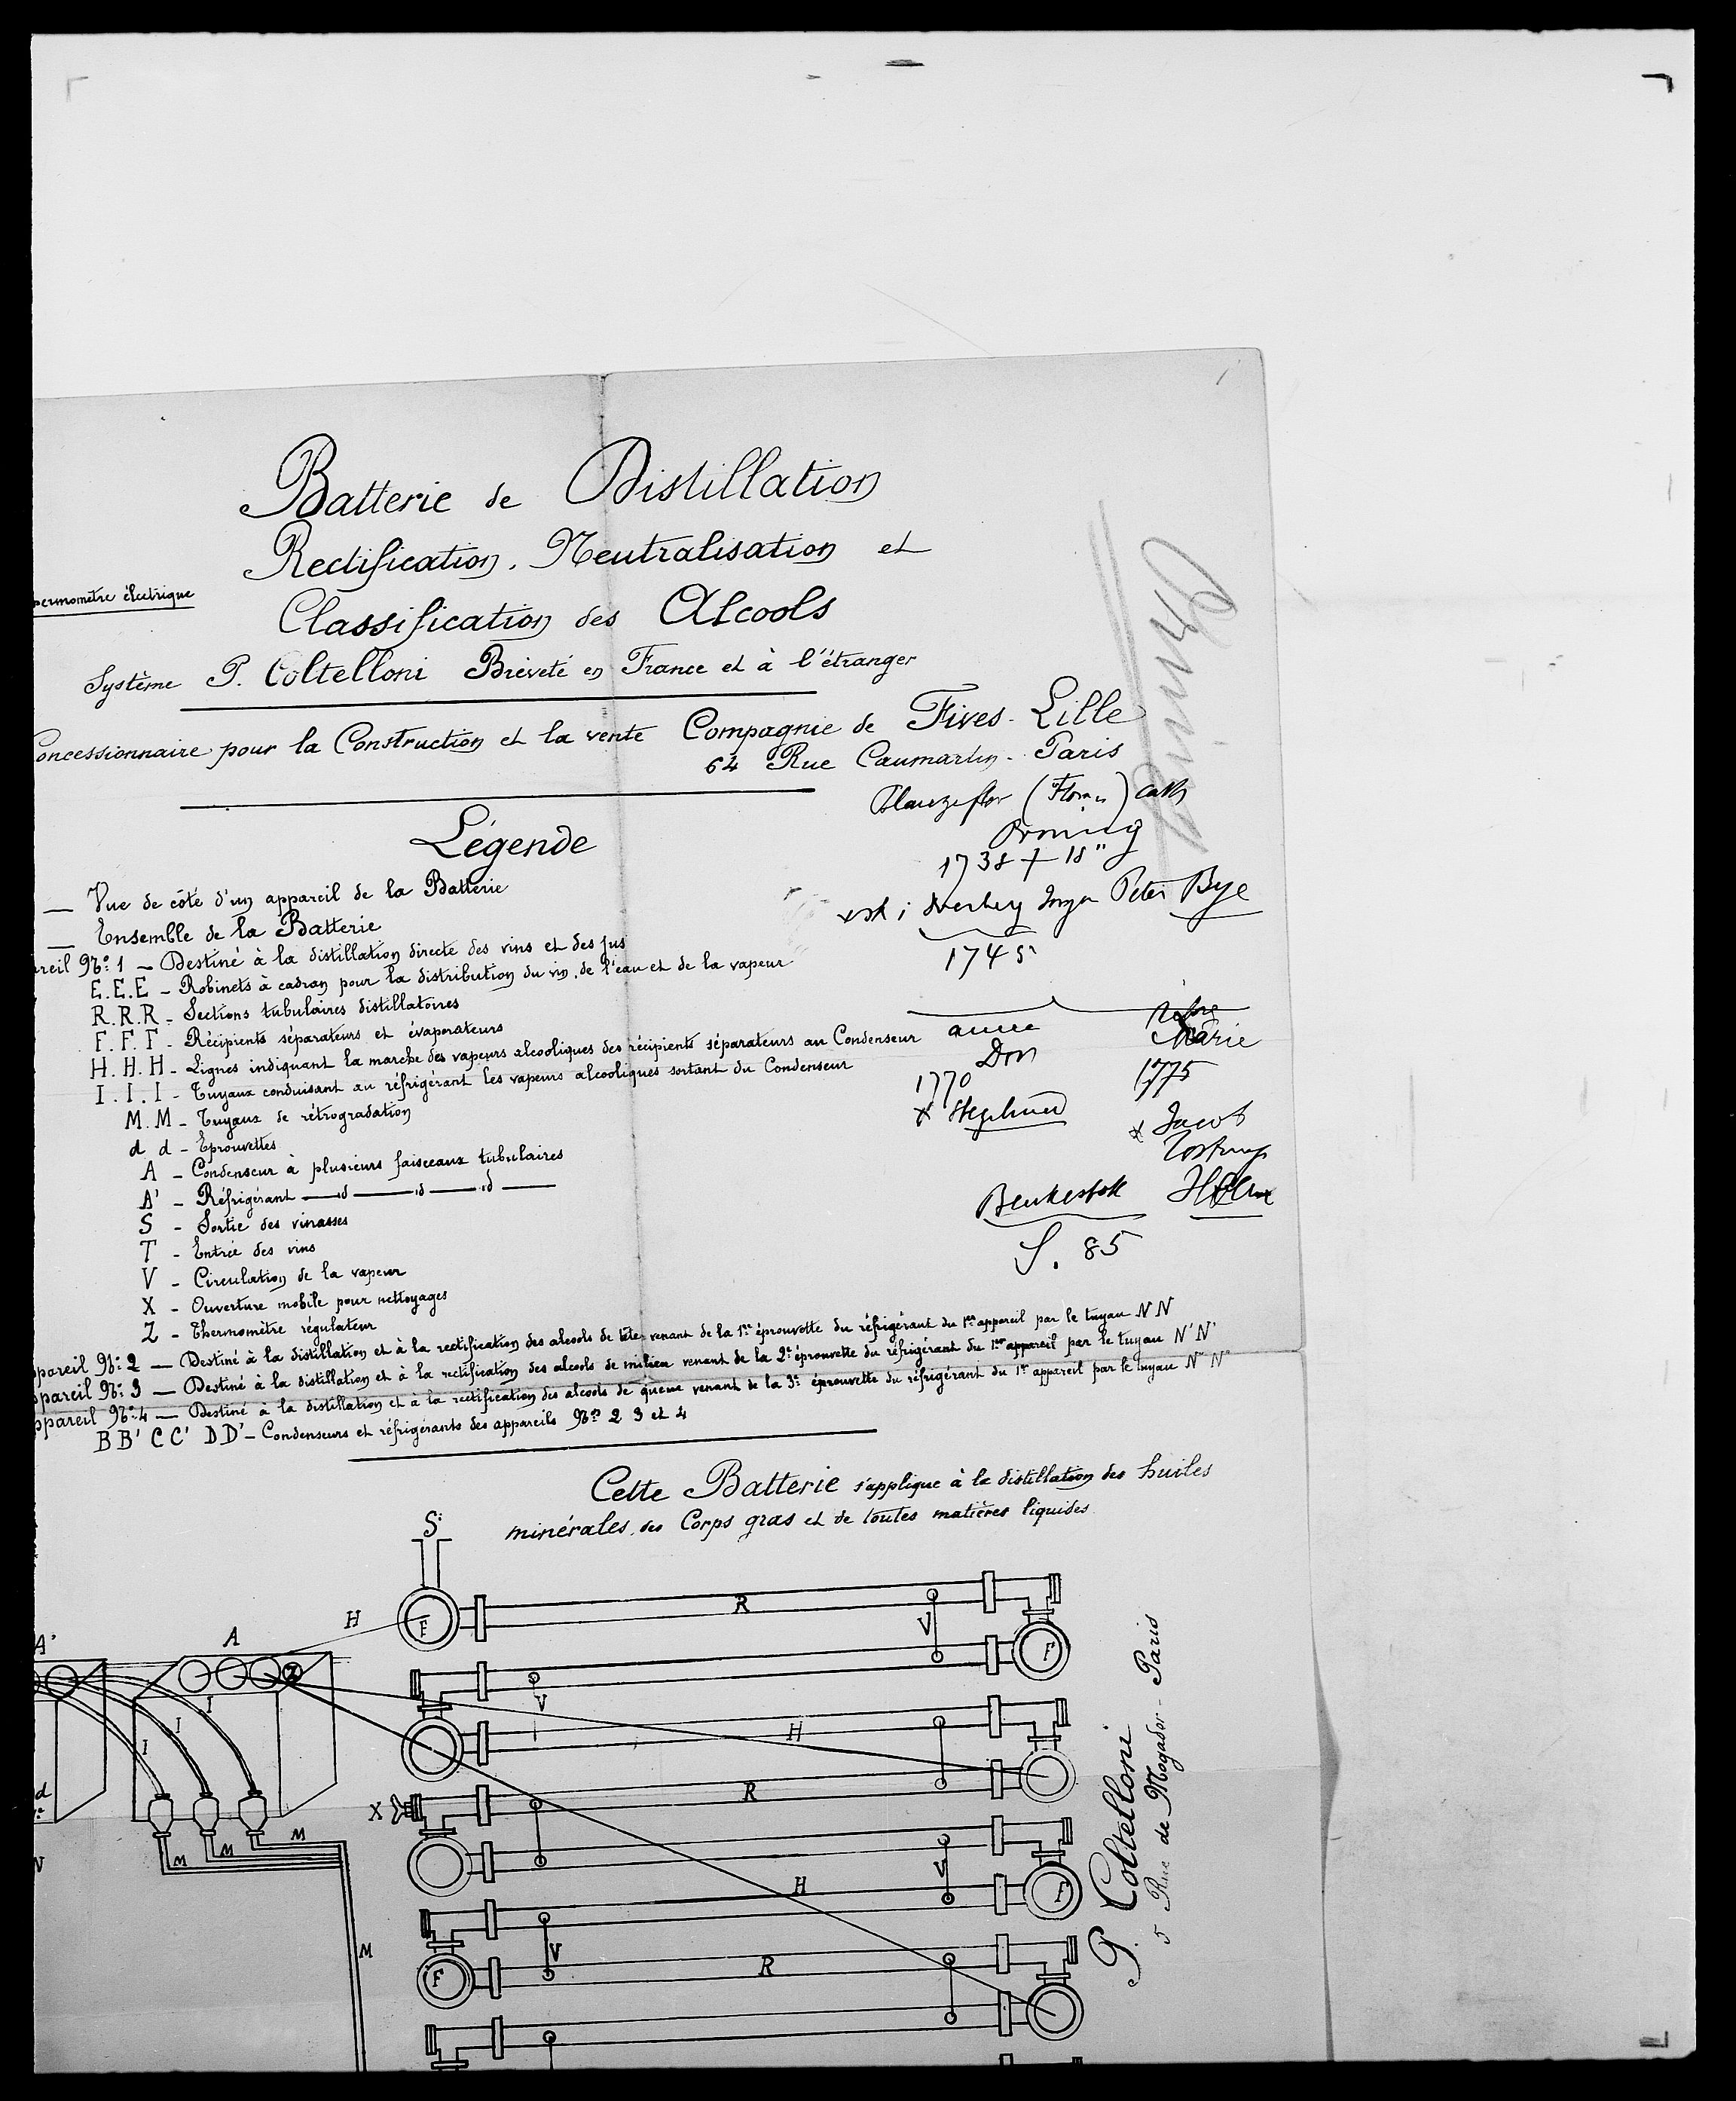 Batterie de Distillation
Rectification, Neutralisation et
ermomètre électrique
Classification des Alcools
Système P. Coltelloni Brèveté en France et à l'étranger
oncessionnaire pour la Construction et la vente Compagnie de Fives-Lille
64 Rue Caumartin - Paris
(Flor
1738 † 18"
Peter Bye
1745
Marie
1770
1775
x Jacob
S. 85
Légende
— Vue de côté d'un appareil de la Batterie
— Ensemble de la Batterie
areil No: 1 — Destiné à la distillation directe des vins et des jus
E.E.E - Robinets à cadran pour la distribution du vin, de l'eau et de la vapeur
R.R.R - Sections tubulaires distillatoires
F.F.F - Récipients séparateurs et évaporateurs
H.H.H - Lignes indiquant la marche des vapeurs alcooliques des récipients séparateurs au Condenseur
I.I.I - Tuyaux conduisant au réfrigérant les vapeurs alcooliques sortant du Condenseur
M.M - Tuyaux de rétrogradation
d d - Eprouvettes
A - Condenseur à plusieurs faisceaux tubulaires
A' - Réfrigérant — d — d — d —
S - Sortie des vinasses
T - Entrée des vins
V - Circulation de la vapeur
X - Ouverture mobile pour nettoyages
Z - Thermomètre régulateur
ppareil No: 2 — Destiné à la distillation et à la rectification des alcools de tête venant de la 1re éprouvette du réfrigérant du 1er appareil par le tuyau N N
ppareil No: 3 — Destiné à la distillation et à la rectification des alcools de milieu venant de la 2e éprouvette du réfrigérant du 1er appareil par le tuyau N' N'
ppareil No: 4 — Destiné à la distillation et à la rectification des alcools de queue venant de la 3e éprouvette du réfrigérant du 1er appareil par le tuyau N" N"
B B' C C' D D' - Condenseurs et réfrigérants des appareils Nos 2 3 et 4
Cette Batterie s'applique à la distillation des huiles
minérales, des Corps gras et de toutes matières liquides
S'
H
F
R
V
F
A'
A
Z
I
I
I
V
H
X
R
d
M
M
M
N
H
V
F
M
F
V
R
P. Coltelloni
5 Rue de Mogador - Paris